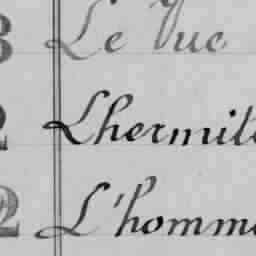 3 Le Duc
2 Lhermite
2 L'homme